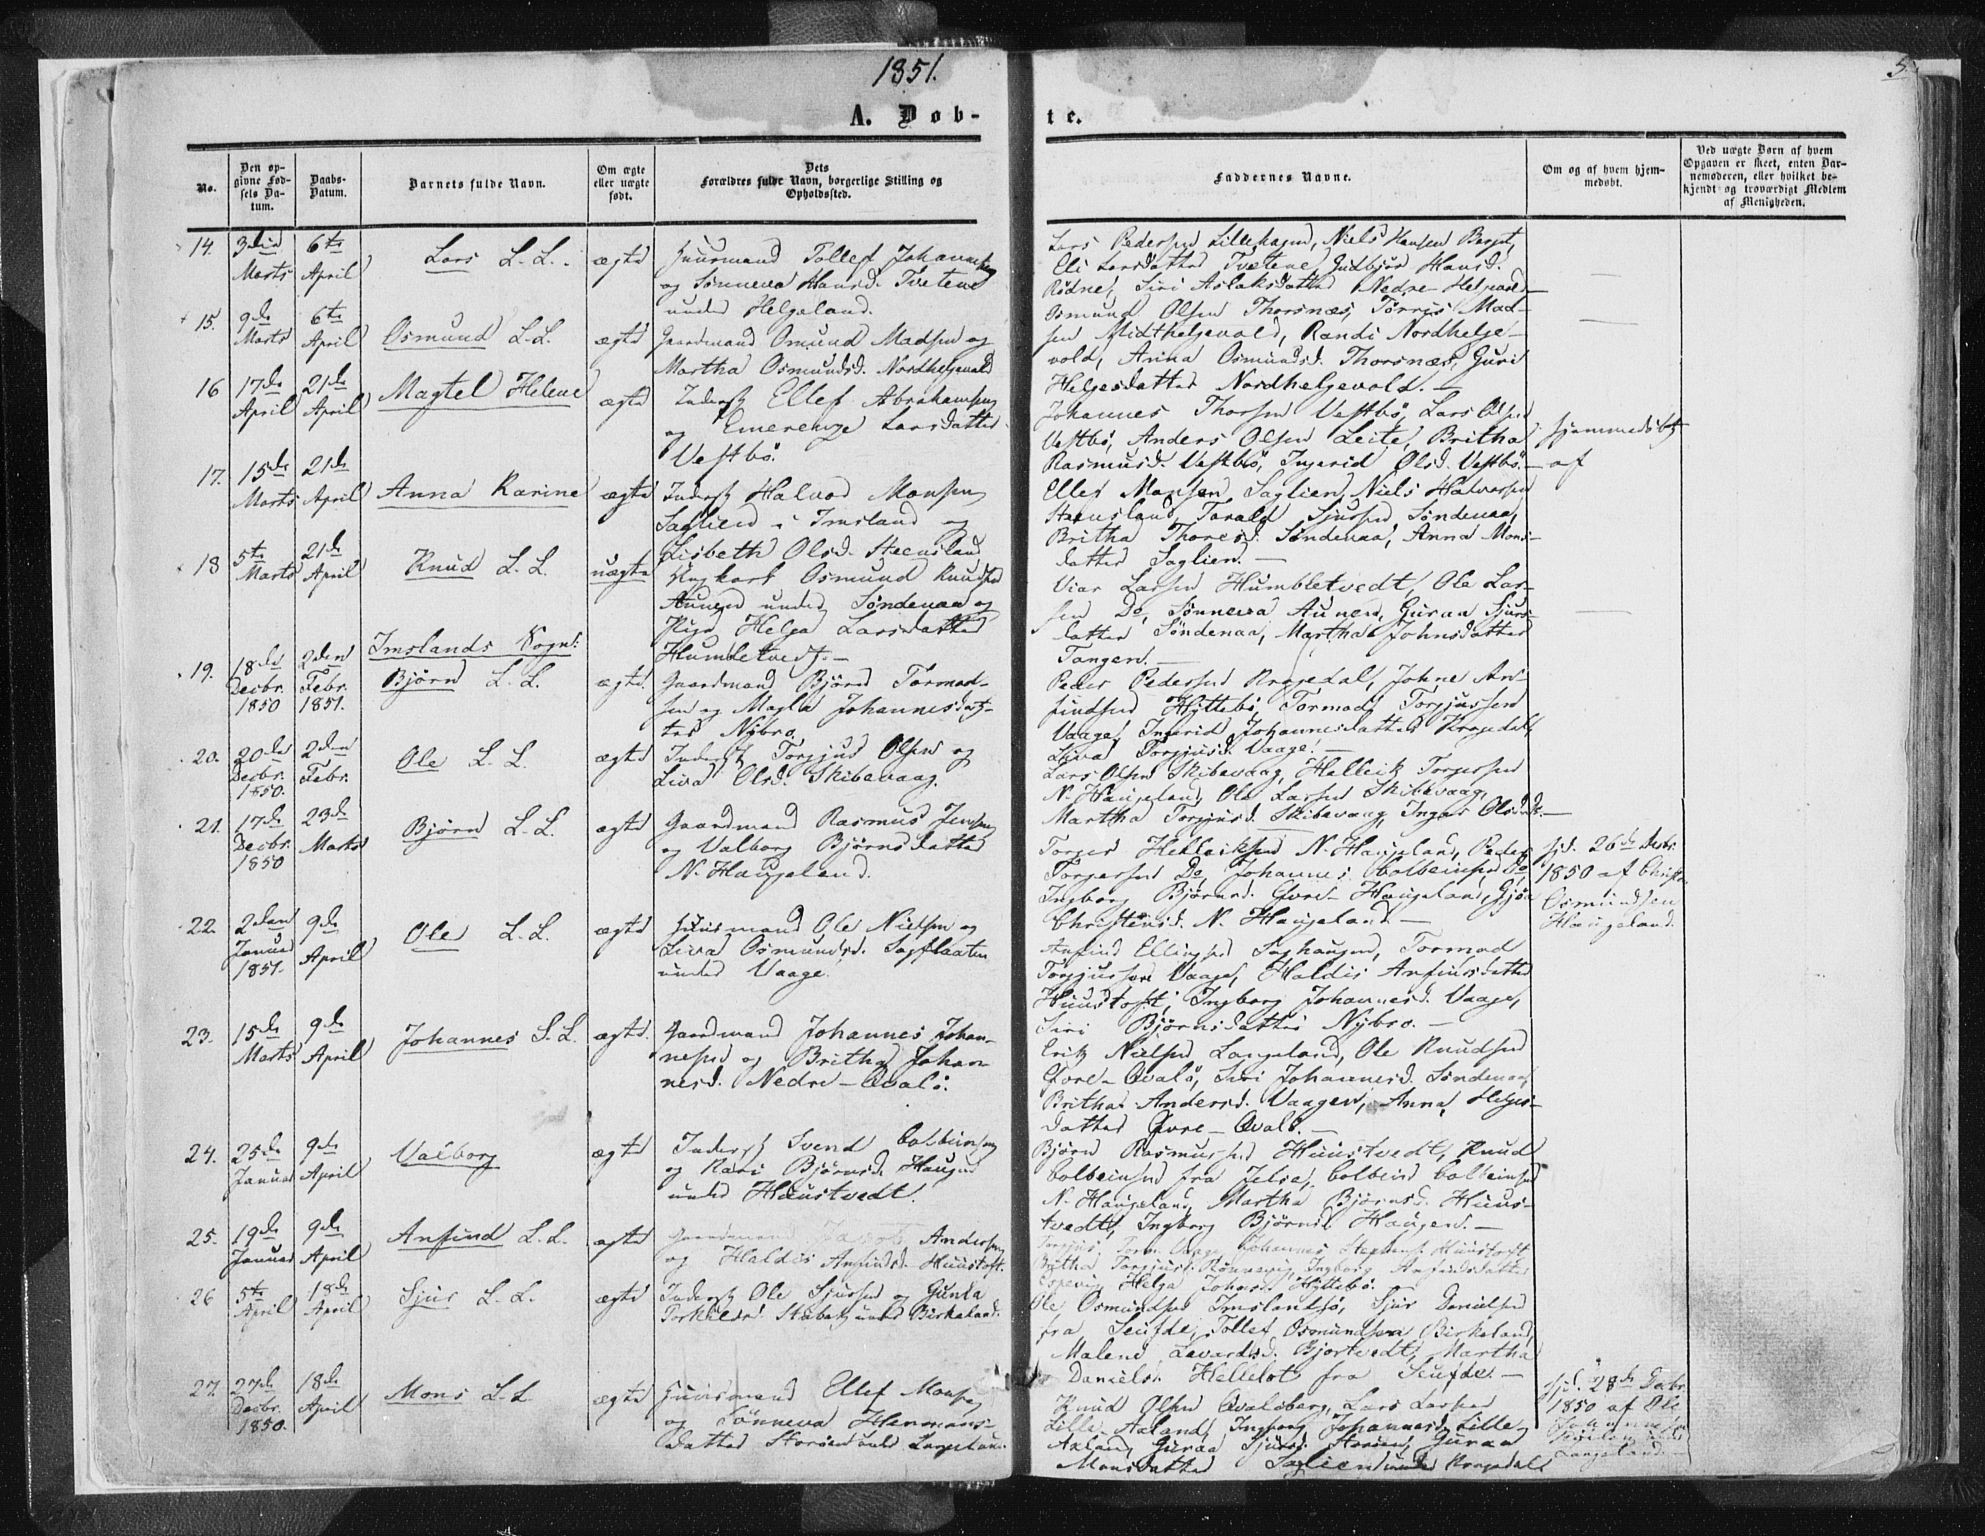 1851.
5.
A. Døb-
te.
No.
Den op-
givne Fød-
sels Da-
tum.
Daabs-
Datum.
Barnets fulde Navn.
Om ægte
eller uægte
født.
Dets
Forældres fulde Navn, borgerlige Stilling og
Opholdssted.
Faddernes Navne.
Om og af hvem hjem-
medøbt.
Ved uægte Børn af hvem
Opgaven er skeet, enten Bar-
nemoderen, eller hvilket be-
kjendt og troværdigt Medlem
af Menigheden.
14.
3die
Marts
6te
April
Lars L. L.
ægte
Huusmand Tollef Johannsen
og Sønneva Hansd. Tvetene
under Helgeland.
Lars Pedersen Lillehagen, Niels Hansen Berget,
Eli Larsdatter Tvetene, Gudbjør Hansd.
Rødne, Siri Aslaksdatter Nedre
15.
9de
Marts
6te
April
Osmund L. L.
ægte
Gaardmand Omund Madsen og
Martha Osmundsd. Nordhelgevold
Osmund Olsen Thorsnæs, Tørris Mad-
sen Midthelgevold, Randi Nordhelge-
vold, Anna Osmundsd. Thorsnæs, Guri
Helgesdatter Nordhelgevold. -
16
17de
April
21de
April
Magtel Helene
ægte
Inderst Ellef Abrahamsen
og Emerenze Larsdatter
Vestbø
Johannes Thorsen Vestbø, Lars Olsen
Vestbø, Anders Olsen Leite, Britha
Rasmusd. Vestbø, Ingerid Olsd. Vestbø. -
hjemmedøbt
af
17.
15de
Marts
21de
April
Anna Karine
ægte
Inderst Halvor Monsen
Saglien i Imsland og
Lisbeth Olsd. Steensland
Ellef Monsen Saglien, Niels Halvorsen
Steensland, Tarald Sjursen Søndenaa,
Britha Thoresd. Søndenaa, Anna Mons-
datter Saglien. -
18
5te
Marts
21de
April
Knud L. L.
uægte
Ungkarl Osmund Knudsen
Aunen under Søndenaa og
Pige Helga Larsdatter
Humbletvedt. -
Viar Larsen Humbletvedt, Ole Lar-
sen Do, Sønneva Aunen, Guraa Sjurs-
datter Søndenaa, Martha Johnsdatter
Tangen. -
Imslands Sogn:
19.
18de
Decbr.
1850
2den
Febr.
1851.
Bjørn L. L.
ægte
Gaardmand Bjørn Tormod-
sen og Magla Johannesdat-
ter Nybro.
Peder Pedersen Krogedal, Johne An-
findsen Hyttebø, Tormod Torgjussen
Vaage, Ingerid Johannesdatter Krogedal,
Liva Torgjusd. Vaage. -
20.
20de
Decbr.
1850.
2den
Febr.
Ole L. L.
ægte
Inderst Torgjus Olsen og
Liva Olsd. Skibevaag.
Lars Olsen Skibevaag, Helleik Torgersen
N. Haugeland, Ole Larsen Skibevaag,
Martha Torgjusd. Skibevaag, Inger Olsd. Do -
21.
17de
Decbr.
1850
23de
Marts
Bjørn L. L.
ægte
Gaardmand Rasmus Jensen
og Valborg Bjørnsdatter
N. Haugeland.
Torger Helleiksen N. Haugeland, Peder
Torgersen Do, Johannes Colbeinsen Do,
Ingborg Bjørnsd. Øvre-Haugeland, Gjøa
Christensd. N. Haugeland. -
hjd. 26de Decbr.
1850 af
Osmundsen
Haugeland.
22.
2den
Januar
1851.
9de
April
Ole L. L.
ægte
Huusmand Ole Nielsen og
Liva Osmundsd. Sagflaaten
under Vaage.
Anfind Ellingsen Saghaugen, Tormod
Torgjussen Vaage, Haldis Anfindsdatter
Huustoft, Ingborg Johannesd. Vaage,
Siri Bjørnsdatter Nybro. -
23.
15de
Marts
9de
April
Johannes L. L.
ægte.
Gaardmand Johannes Johan-
nesen og Britha Johan-
nesd. Nedre-Qvalø.
Erik Nielsen Langeland, Ole Knudsen
Øvre-Qvalø, Siri Johannesd. Søndenaa,
Britha Andersd. Vaagen, Anna Helges-
datter Øvre-Qvalø. -
24.
25de
Januar
9de
April
Valborg
ægte
Inderst Svend Colbeinsen
og Kari Bjørnsd. Haugen
under Huustvedt.
Bjørn Rasmussen Huustvedt, Knud
Colbeinsen fra Jelse, Colbein Colbeinsen
N. Haugeland, Martha Bjørnsd. Huus-
tvedt, Ingborg Bjørnsd. Haugen. -
25.
19de
Januar
9de
April
Anfind L. L.
ægte
Gaardmand Andersen
og Haldis Anfindsd. Huustoft.
Torgjus Vaage, Johannes Huustoft
Britha Torgjusd. Rønnevig, Ingborg Anfindsdatter
Espevig, Helga Johnsd. Hyttebø.
26
5te
April
18de
April
Sjur L. L.
ægte
Inderst Ole Sjursen og Gunla
Torkildsd. under Birkeland.
Ole Osmundsen Imslandsjø, Sjur Danielsen
fra Seufde, Tollef Osmundsen Birkeland,
Malene Bjortvedt, Martha
Danielsd. fra Seufde. -
27.
27de
Decbr.
1850.
18de
April
Mons L. L.
ægte
Huusmand Ellef Monsen
og Sønneva Hermans-
datter Storøen under Langeland.
Knud Olsen Qvaleberg, Lars Larsen
Lille-Axland, Ingborg Johannesd. Lille
Axland, Guraa Sjursd. Guraa
Monsdatter Saglien under Krogedal
hjd. 28de Decbr.
1850 af Ole
Johannesen
Langeland.